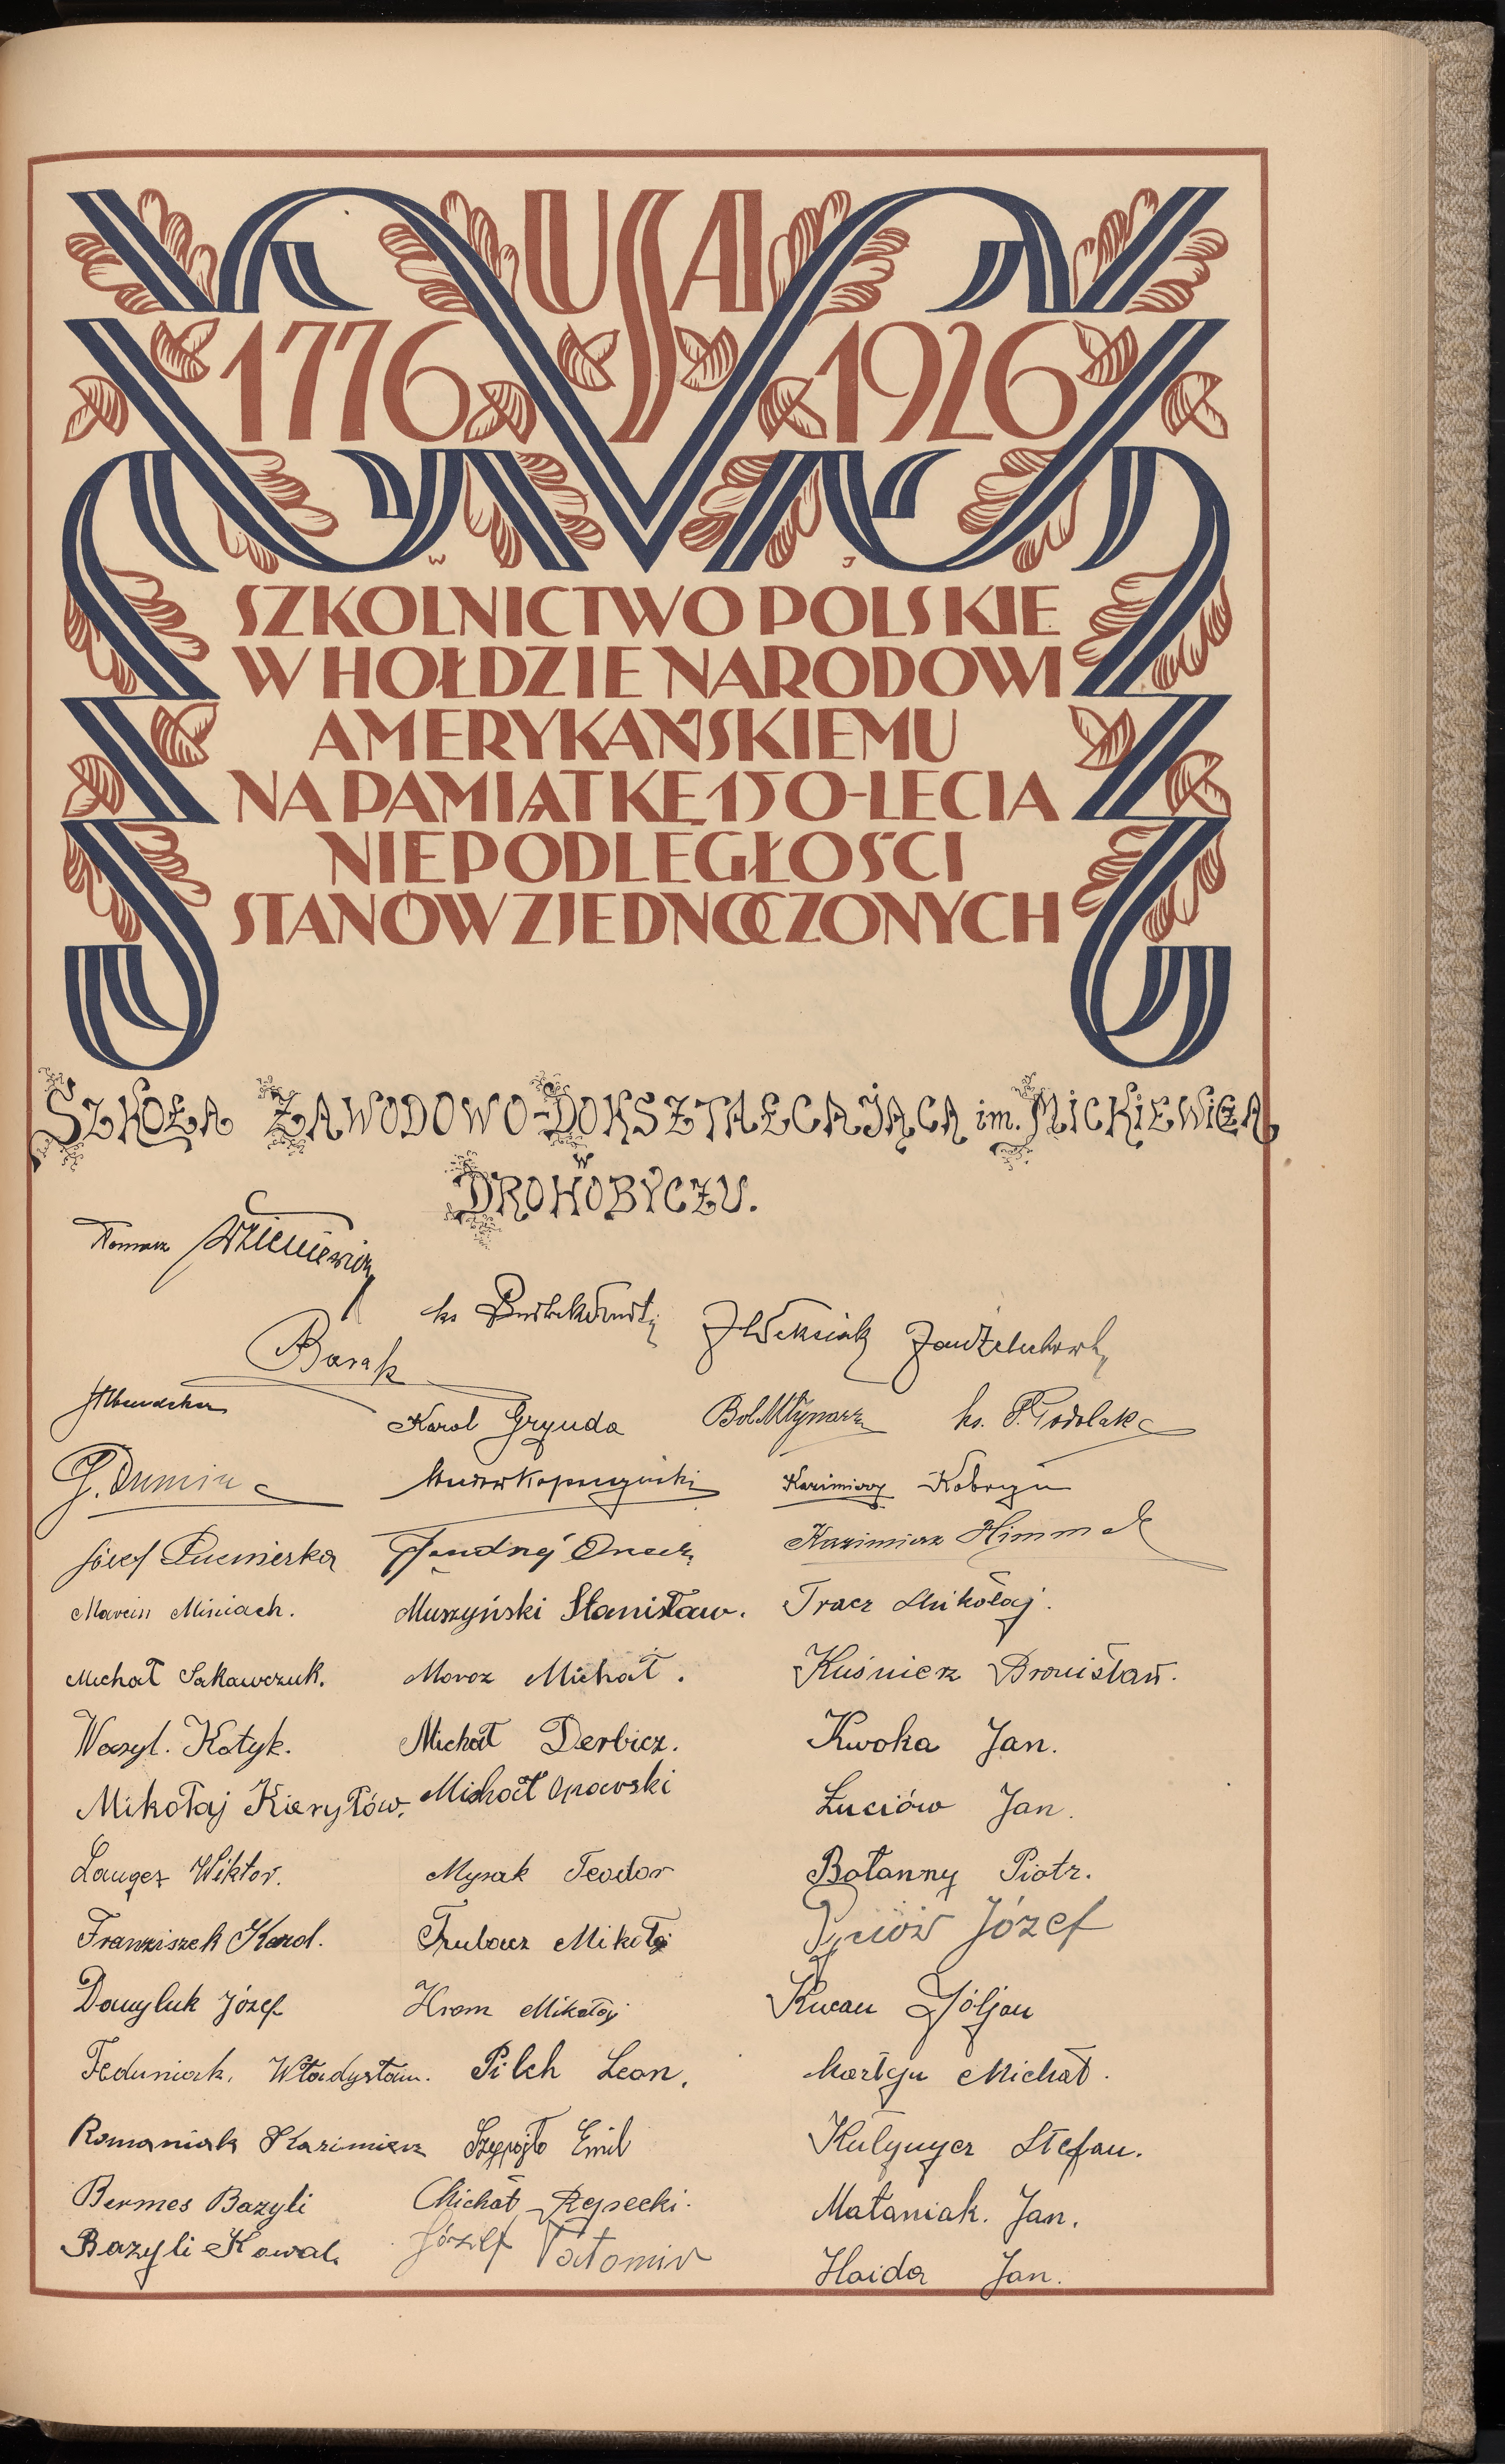 USA
1776 1926
W J
SZKOLNICTWO POLSKIE
W HOŁDZIE NARODOWI
AMERYKAŃSKIEMU
NA PAMIĄTKĘ 150-LECIA
NIEPODLEGŁOŚCI
STANÓW ZJEDNOCZONYCH
SZKOŁA ZAWODOWO-DOKSZTAŁCAJĄCA im. MICKIEWICZA
W
DROHOBYCZU.
Tomasz
ks
Barak
Karol Grynda Bol. Młynarz ks. P. Podolak
G. Dumin Kazimierz Kobryn
Józef Pucmierka Jędrzej Kazimierz Himmel
Marcin Miniach. Muszyński Stanisław. Tracz Mikołaj.
Michał Sakawczuk. Moroz Michał. Kuśnierz Bronisław.
Wasyl. Kotyk. Michał Derbicz. Kwoka Jan.
Mikołaj Kieryłów. Michał Opawski Łuciów Jan.
Langer Wiktor. Mysak Teodor Botanny Piotr.
Franziszek Karol. Trubacz Mikołaj Józef
Danyluk Józef Hrom Mikołaj
Feduniak. Władysław. Pilch Leon. Martyn Michał.
Romaniak Kazimierz Emil Kułynycz Stefan.
Bermes Bazyli Michał Rzpecki. Mataniak. Jan.
Bazyli Kowal. Józef Tatomir Haida Jan.